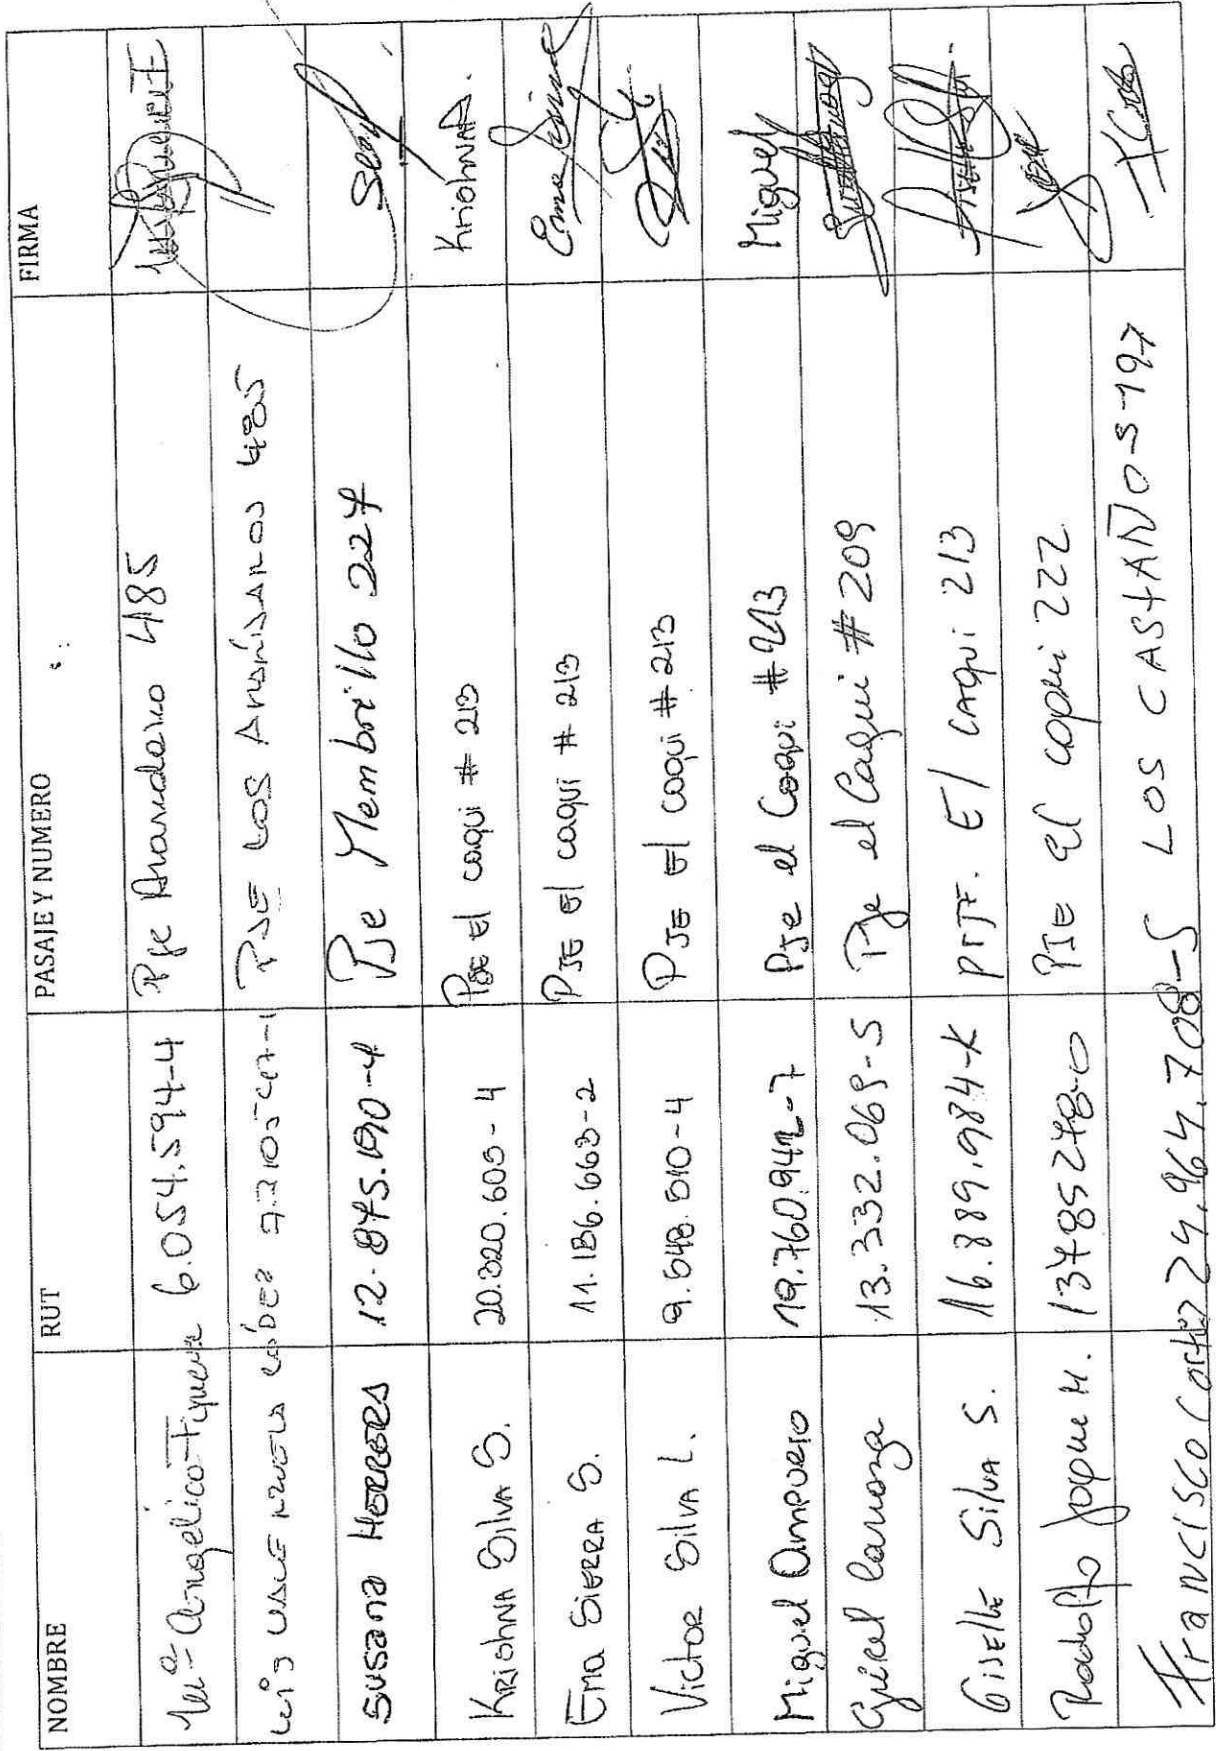 NOMBRE RUT PASAJE Y NUMERO FIRMA
Mª Angelica Figueroa 6.054.594-4 Pje 485
Luis 485
Susana Herrera 12.875.190-4 Pje Membrillo 224
Krishna Silva S. 20.320.605-4 Pje El caqui # 213 Krishna
Ema Sierra S. 11.186.663-2 PJE El caqui # 213 Ema Sierra
Victor Silva L. 9.548.510-4 PJE El caqui # 213
Miguel Ampuero 19.760.942-7 PJe el Caqui # 213 Miguel
13.332.069-5 Pje el Caqui # 209
Giselle Silva S. 16.889.984-K El CAqui 213
Rodolfo M. 13785278-0 PJE El 222
Francisco Cortez 24.964.708-5 LOS CASTAÑOS-197